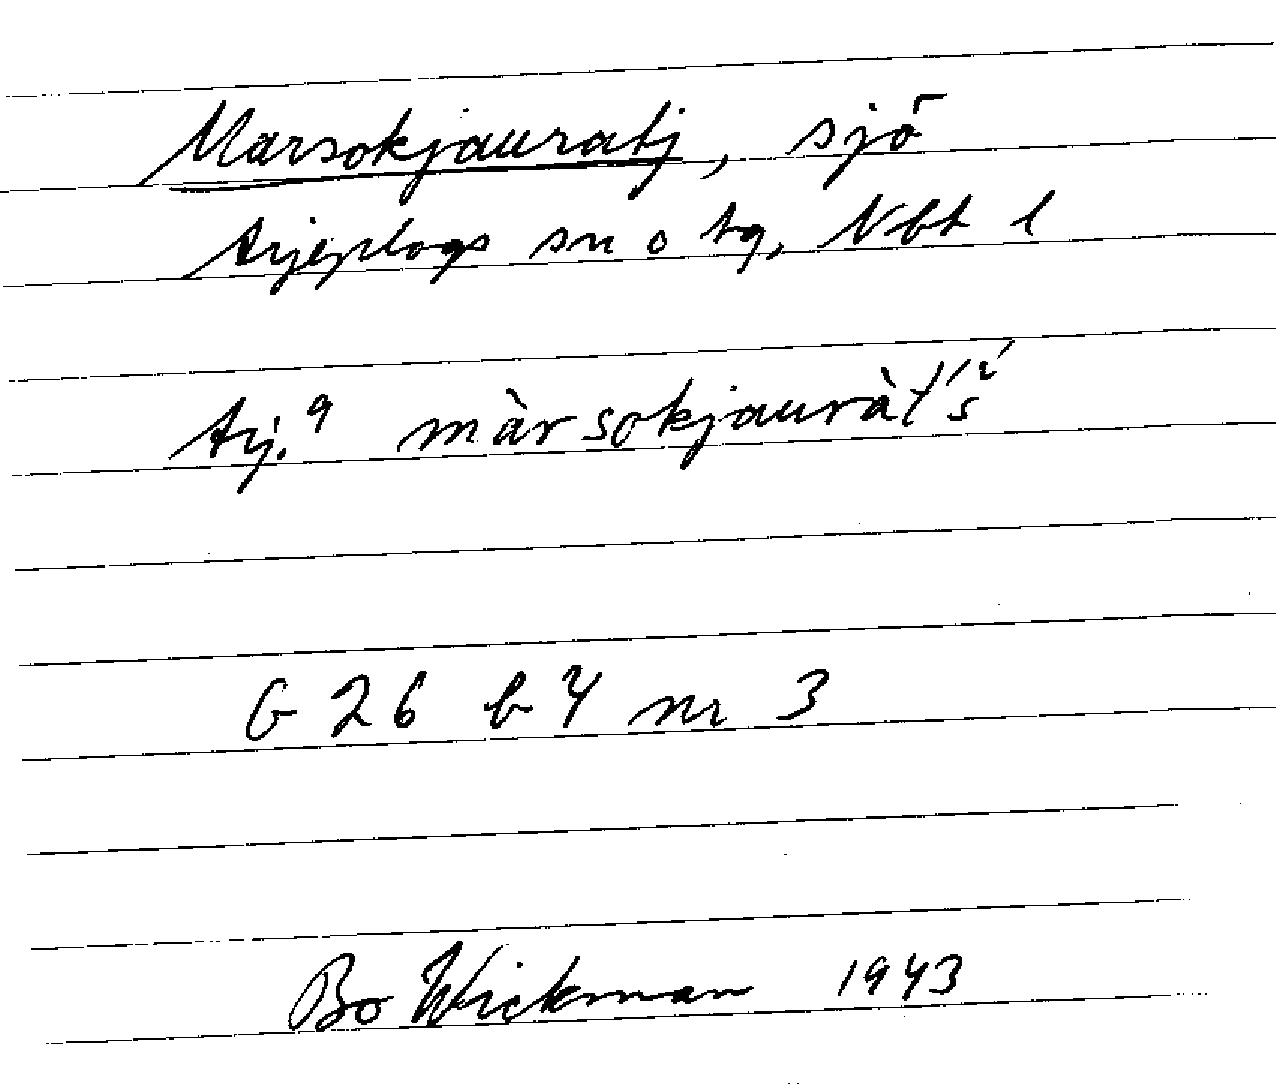 Marsokjauratj, sjö
Arjeplogs sn o tg, Nbt l
Arj.9 màrsokjauràt́ś
G 26 b 4 nr 3
Bo Wickman 1943